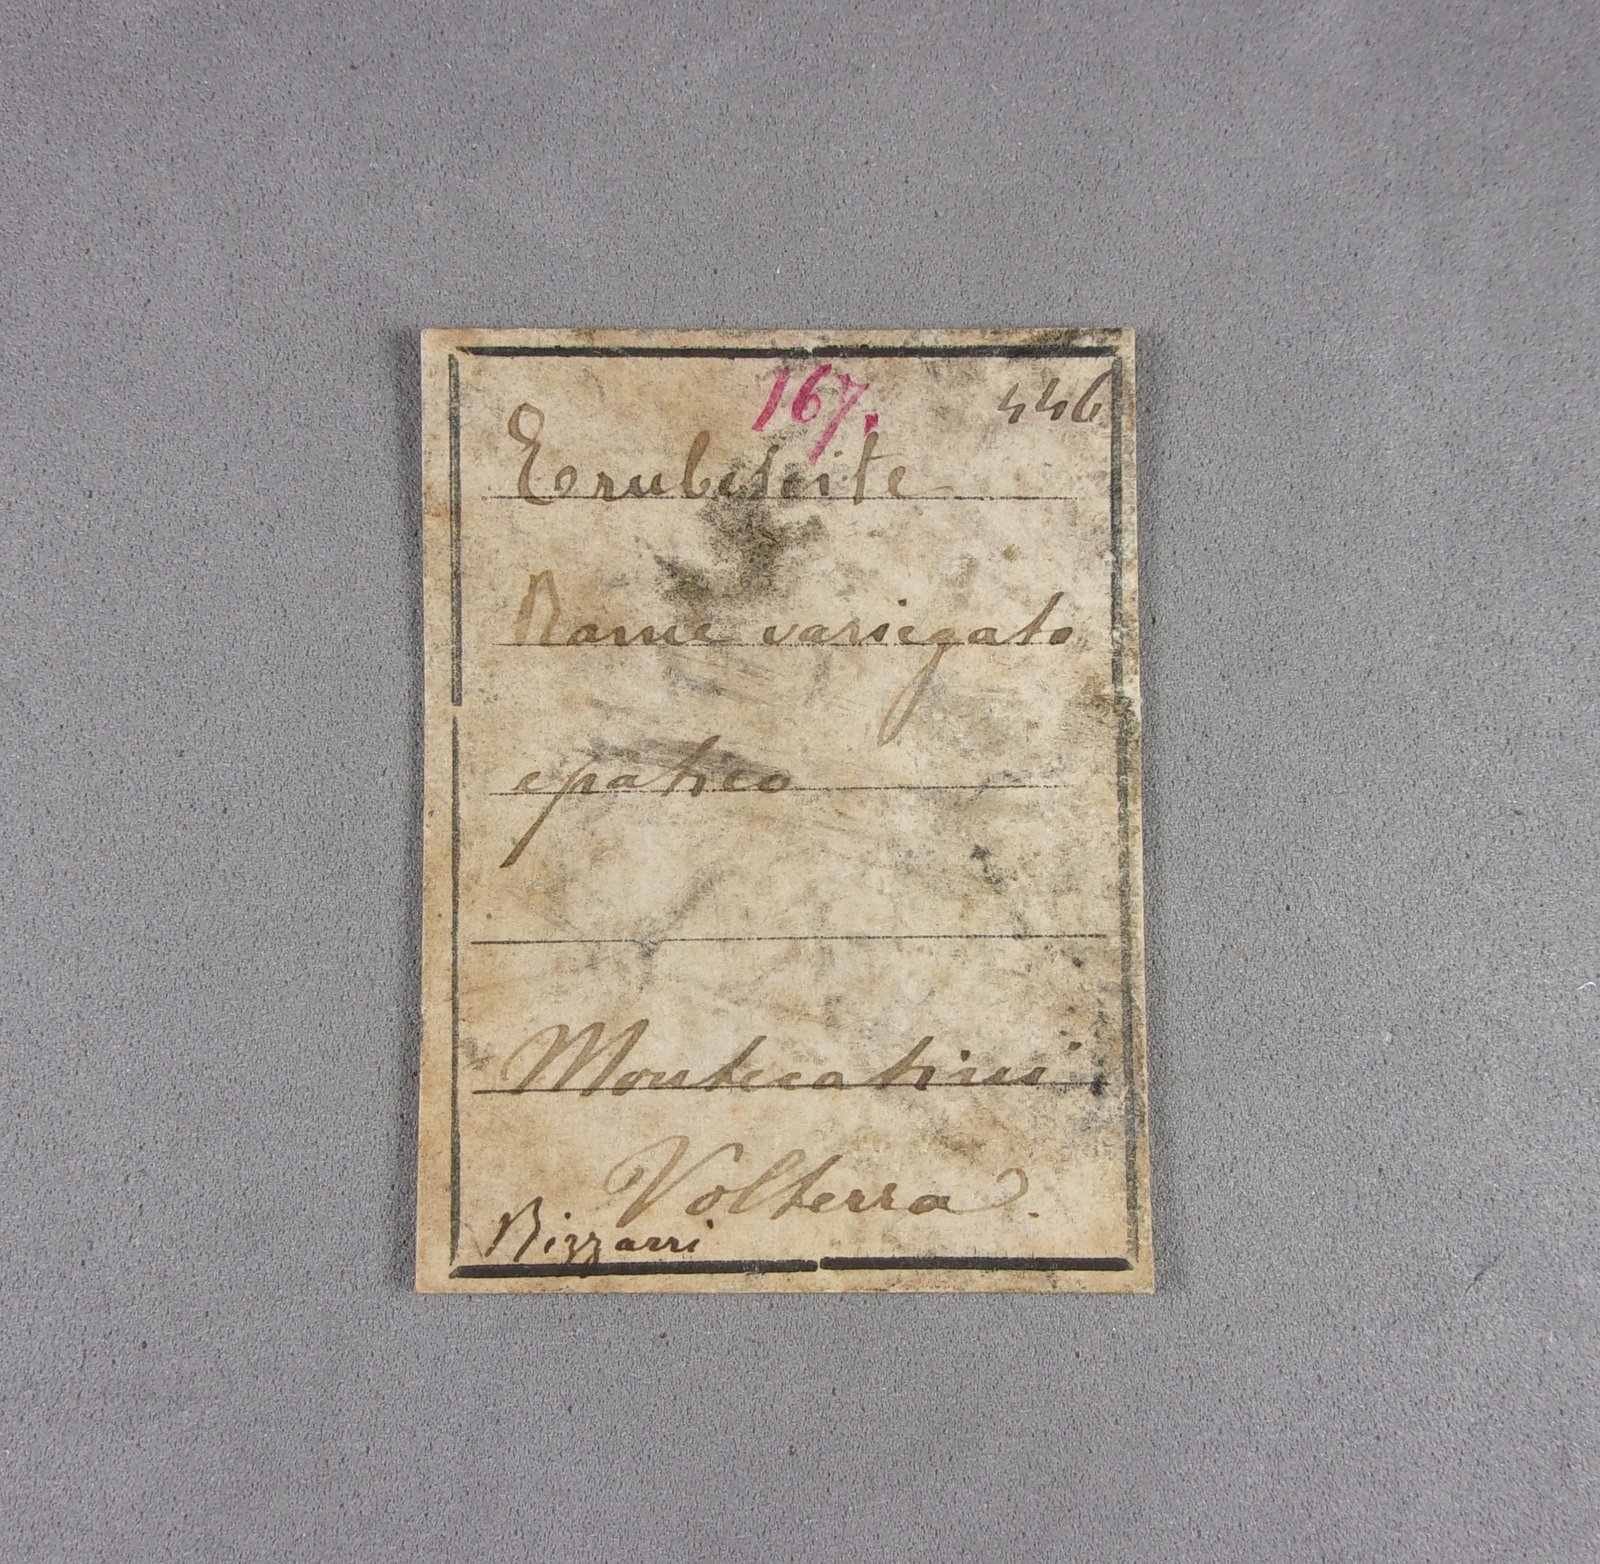 167.
446
Erubescite
Rame variegato
epatico
Montecatini
Volterra.
Bizzarri